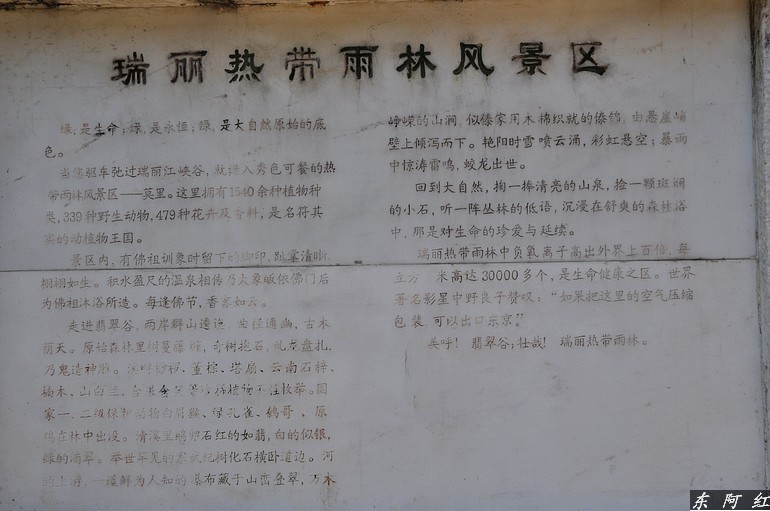 瑞丽热带雨林风景区
绿,是生命;绿,是永恒;绿,是大自然原始的底
色。
当您驱车弛过瑞丽江峡谷,就进入秀色可餐的热
带雨林风景区——莫里。这里拥有1540余种植物种
类,339种野生动物,479种花卉及香料,是名符其
实的动植物王国。
景区内,有佛祖训象时留下的脚印,趾掌清晰,
栩栩如生。积水盈尺的温泉相传乃大象皈依佛门后
为佛祖沐浴所造。每逢佛节,香客如云。
走进翡翠谷,两岸群山逶迤,曲径通幽,古木
荫天。原始森林里树蔓藤,奇树抱石,虬龙盘扎,
乃鬼造神雕。董棕、塔扇、云南石梓、
楠木、山白兰、植物不胜枚举。国
家一、二级保护动物白眉猴、绿孔雀、鹩哥、原
鸡在林中出没。清溪里鹅卵石红的如翡,白的似银,
绿的滴翠。举世罕见的树化石横卧道边。河
的上游,一道鲜为人知的瀑布藏于山峦叠翠,乃木
峥嵘的山涧,似傣家用木棉织就的傣锦,由悬崖峭
壁上倾泻而下。艳阳时雪喷云涌,彩虹悬空;暴雨
中惊涛雷鸣,蛟龙出世。
回到大自然,掬一捧清亮的山泉,捡一颗斑斓
的小石,听一阵丛林的低语,沉浸在舒爽的森林浴
中,那是对生命的珍爱与延续。
瑞丽热带雨林中负氧离子高出外界上百倍,每
立方 米高达30000多个,是生命健康之区。世界
著名影星中野良子赞叹:“如果把这里的空气压缩
包装,可以出口东京。”
美呼!翡翠谷;壮哉!瑞丽热带雨林。
东阿红